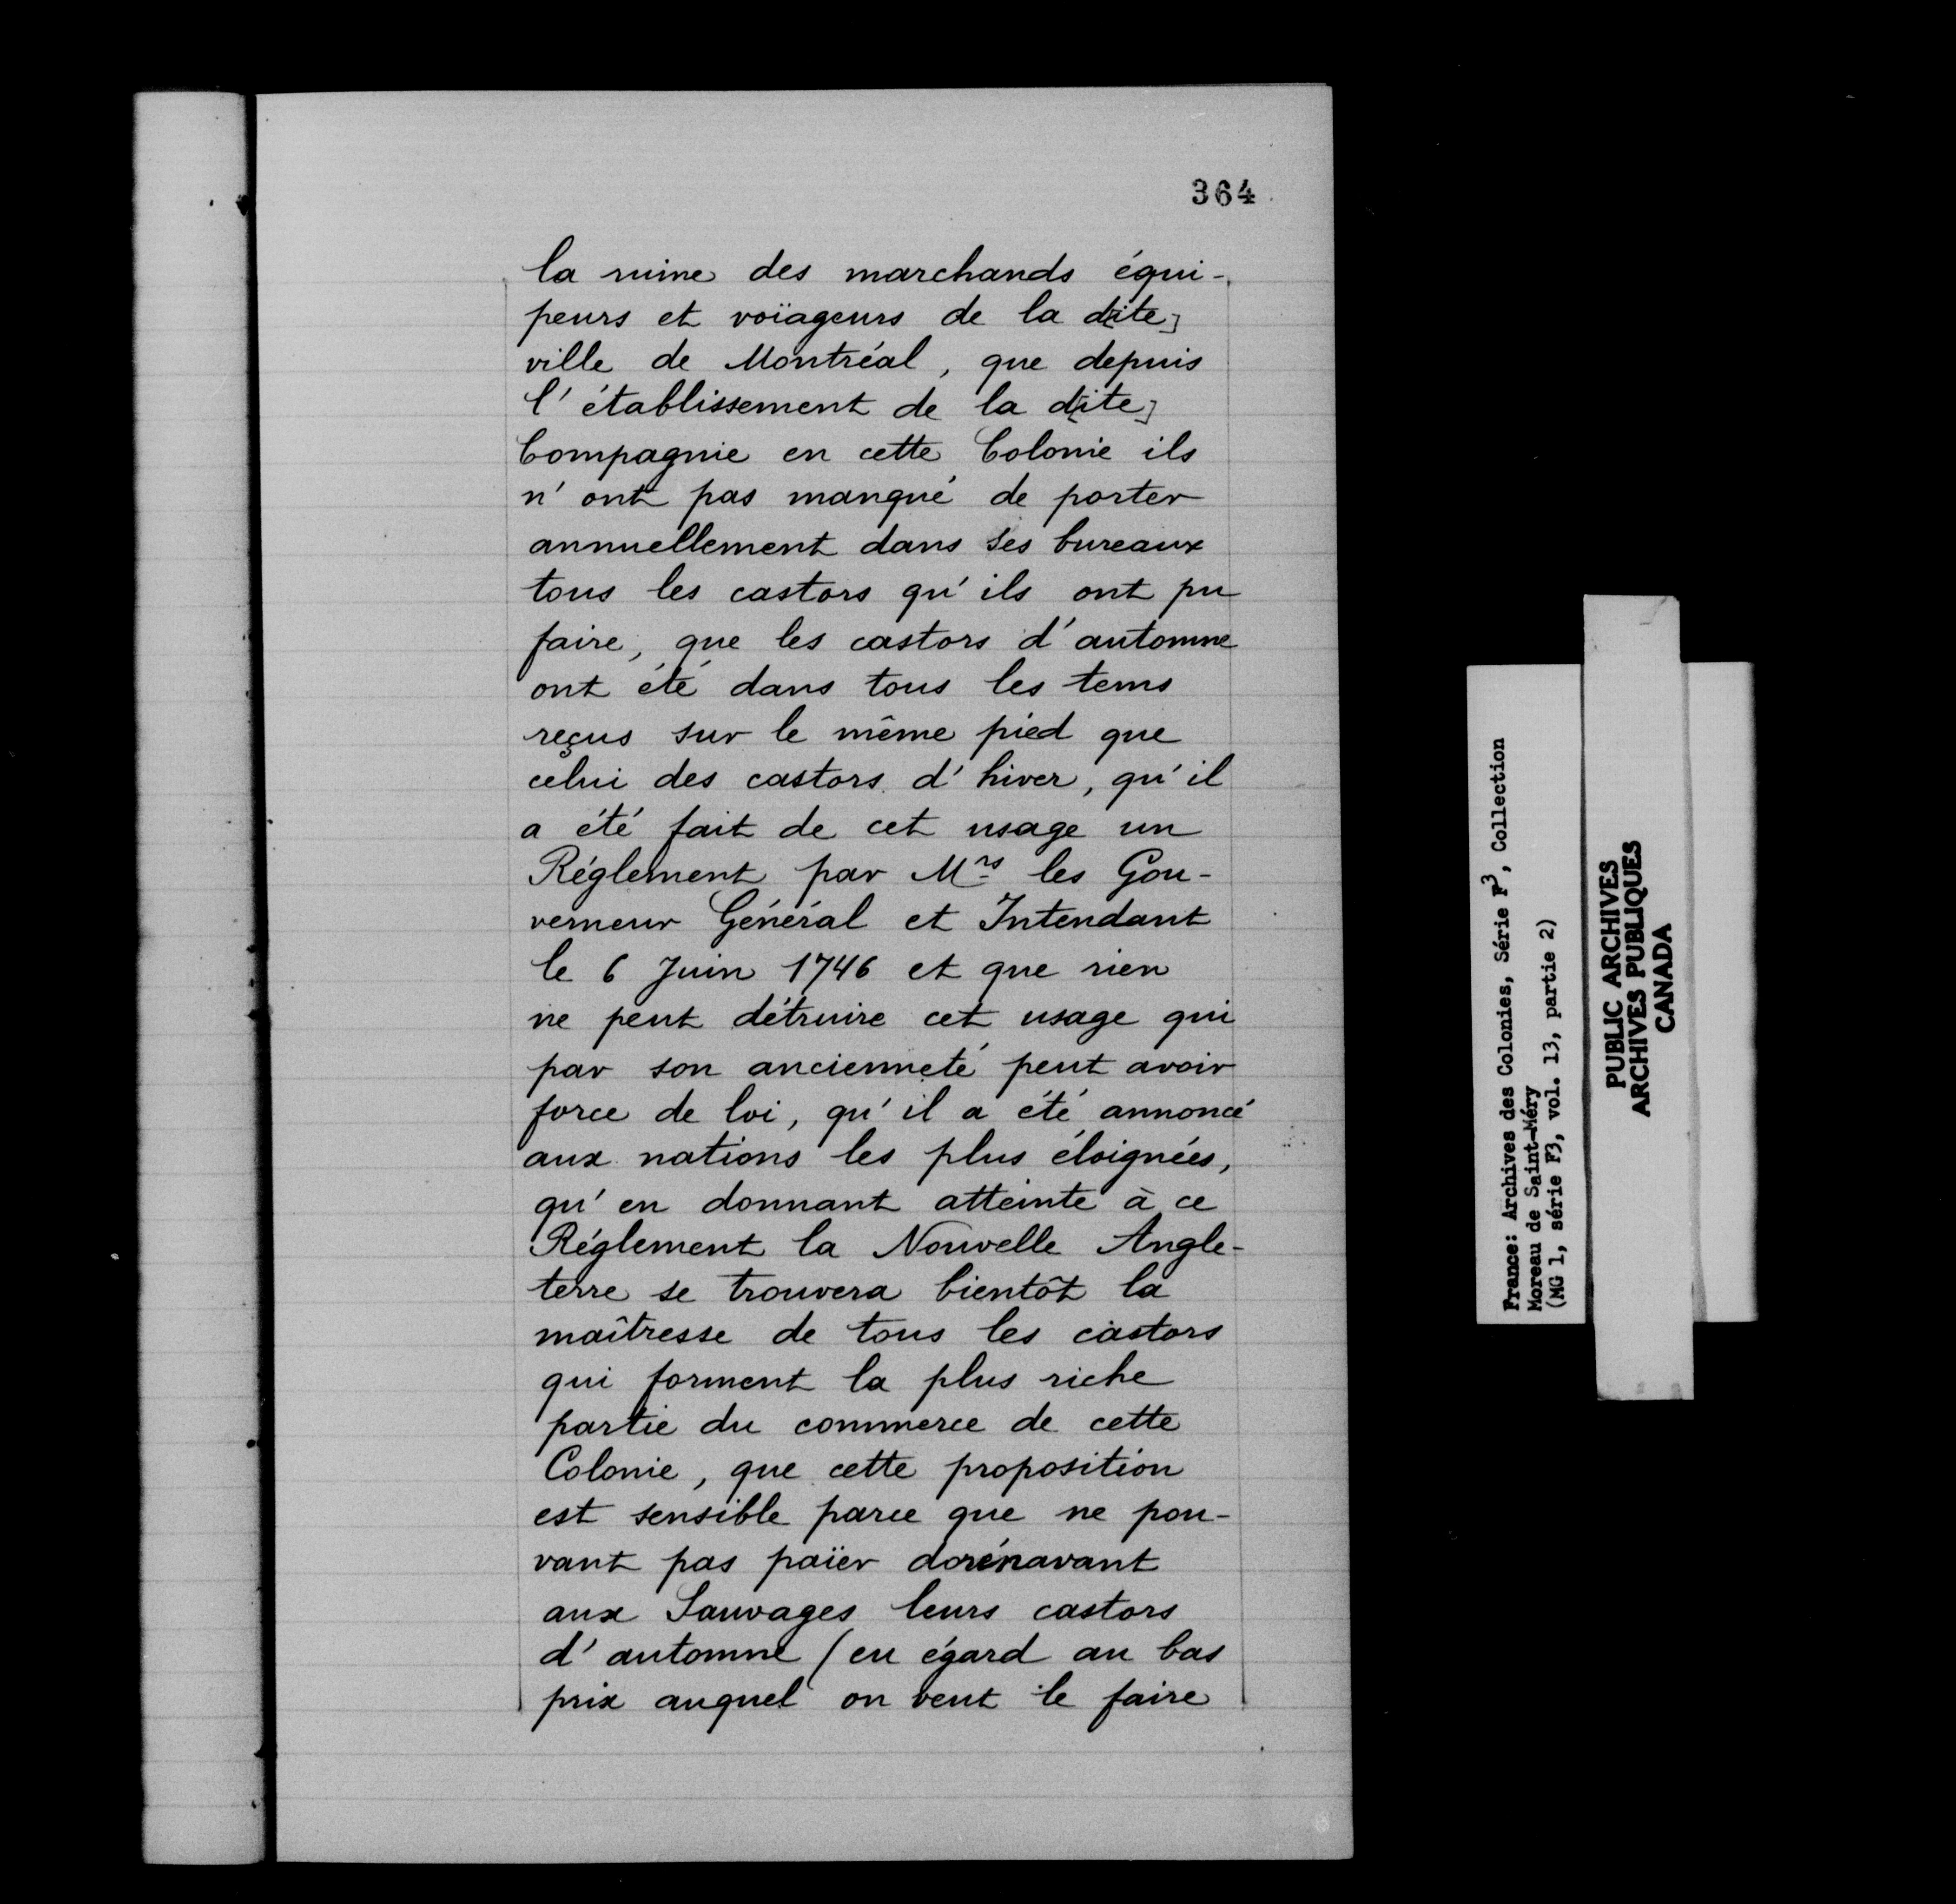 364
la ruine des marchands équi-
peurs et voïageurs de la d[ite]
ville de Montréal, que depuis
l'établissement de la d[ite]
Compagnie en cette Colonie ils
n'ont pas manqué de porter
annuellement dans ses bureaux
tous les castors qu'ils ont pu
faire, que les castors d'automne
ont été dans tous les tems
reçus sur le même pied que
celui des castors d'hiver, qu'il
a été fait de cet usage un
Réglement par Mrs les Gou-
verneur Général et Intendant
le 6 Juin 1746 et que rien
ne peut détruire cet usage qui
par son ancienneté peut avoir
force de loi, qu'il a été annoncé
aux nations les plus éloignées,
qu'en donnant atteinte à ce
Réglement la Nouvelle Angle-
terre se trouvera bientôt la
maîtresse de tous les castors
qui forment la plus riche
partie du commerce de cette
Colonie, que cette proposition
est sensible parce que ne pou-
vant pas païer dorénavant
aux Sauvages leurs castors
d'automne (eu égard au bas
prix auquel on veut le faire
France: Archives des Colonies, Série F3, Collection
Moreau de Saint-Méry
(MG 1, série F3, vol. 13, partie 2)
PUBLIC ARCHIVES
ARCHIVES PUBLIQUES
CANADA